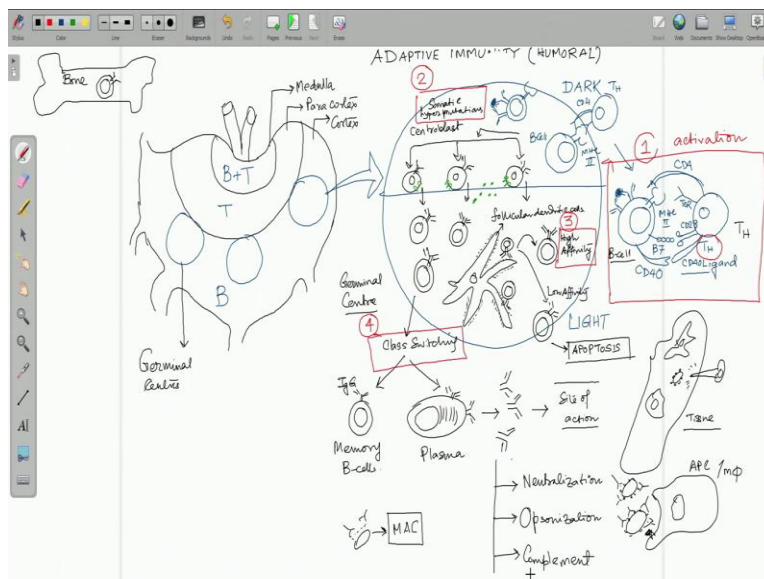 Stylus
Color
Line
Eraser
Backgrounds
Undo
Redo
Pages
Previous
Next
Erase
Board
Web
Documents
Show Desktop
OpenBoard
ADAPTIVE IMMUNITY (HUMORAL)
Bone
Medulla
Para cortex
Cortex
B+T
T
B
Germinal
Centre
2
Somatic
hypermutations
Centroblast
DARK
TH
CD4
B cell
MHC
II
1
activation
CD4
TCR
MHC
II
CD28
B7
TH
TH
B-cell
CD40
CD40 Ligand
follicular dendritic cells
3
High
Affinity
Low Affinity
LIGHT
APOPTOSIS
Germinal
Centre
4
Class Switching
IgG
Memory
B-cells
Plasma
Site of
action
Tissue
Neutralization
Opsonization
Complement
+
APC / mφ
MAC